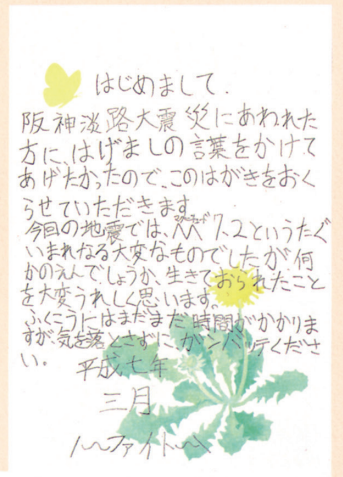 はじめまして.
阪神淡路大震災にあわれた
方に、はげましの言葉をかけて
あげたかったので、このはがきをおく
らせていただきます。
今回の地震では、M7.2というたぐ
いまれなる大変なものでしたが何
かのえんでしょうか、生きておられたこと
を大変うれしく思います。
ふくこうにはまだまだ時間がかかりま
すが、気を落とさずにガンバッテくださ
い。
平成七年
三月
ファイト